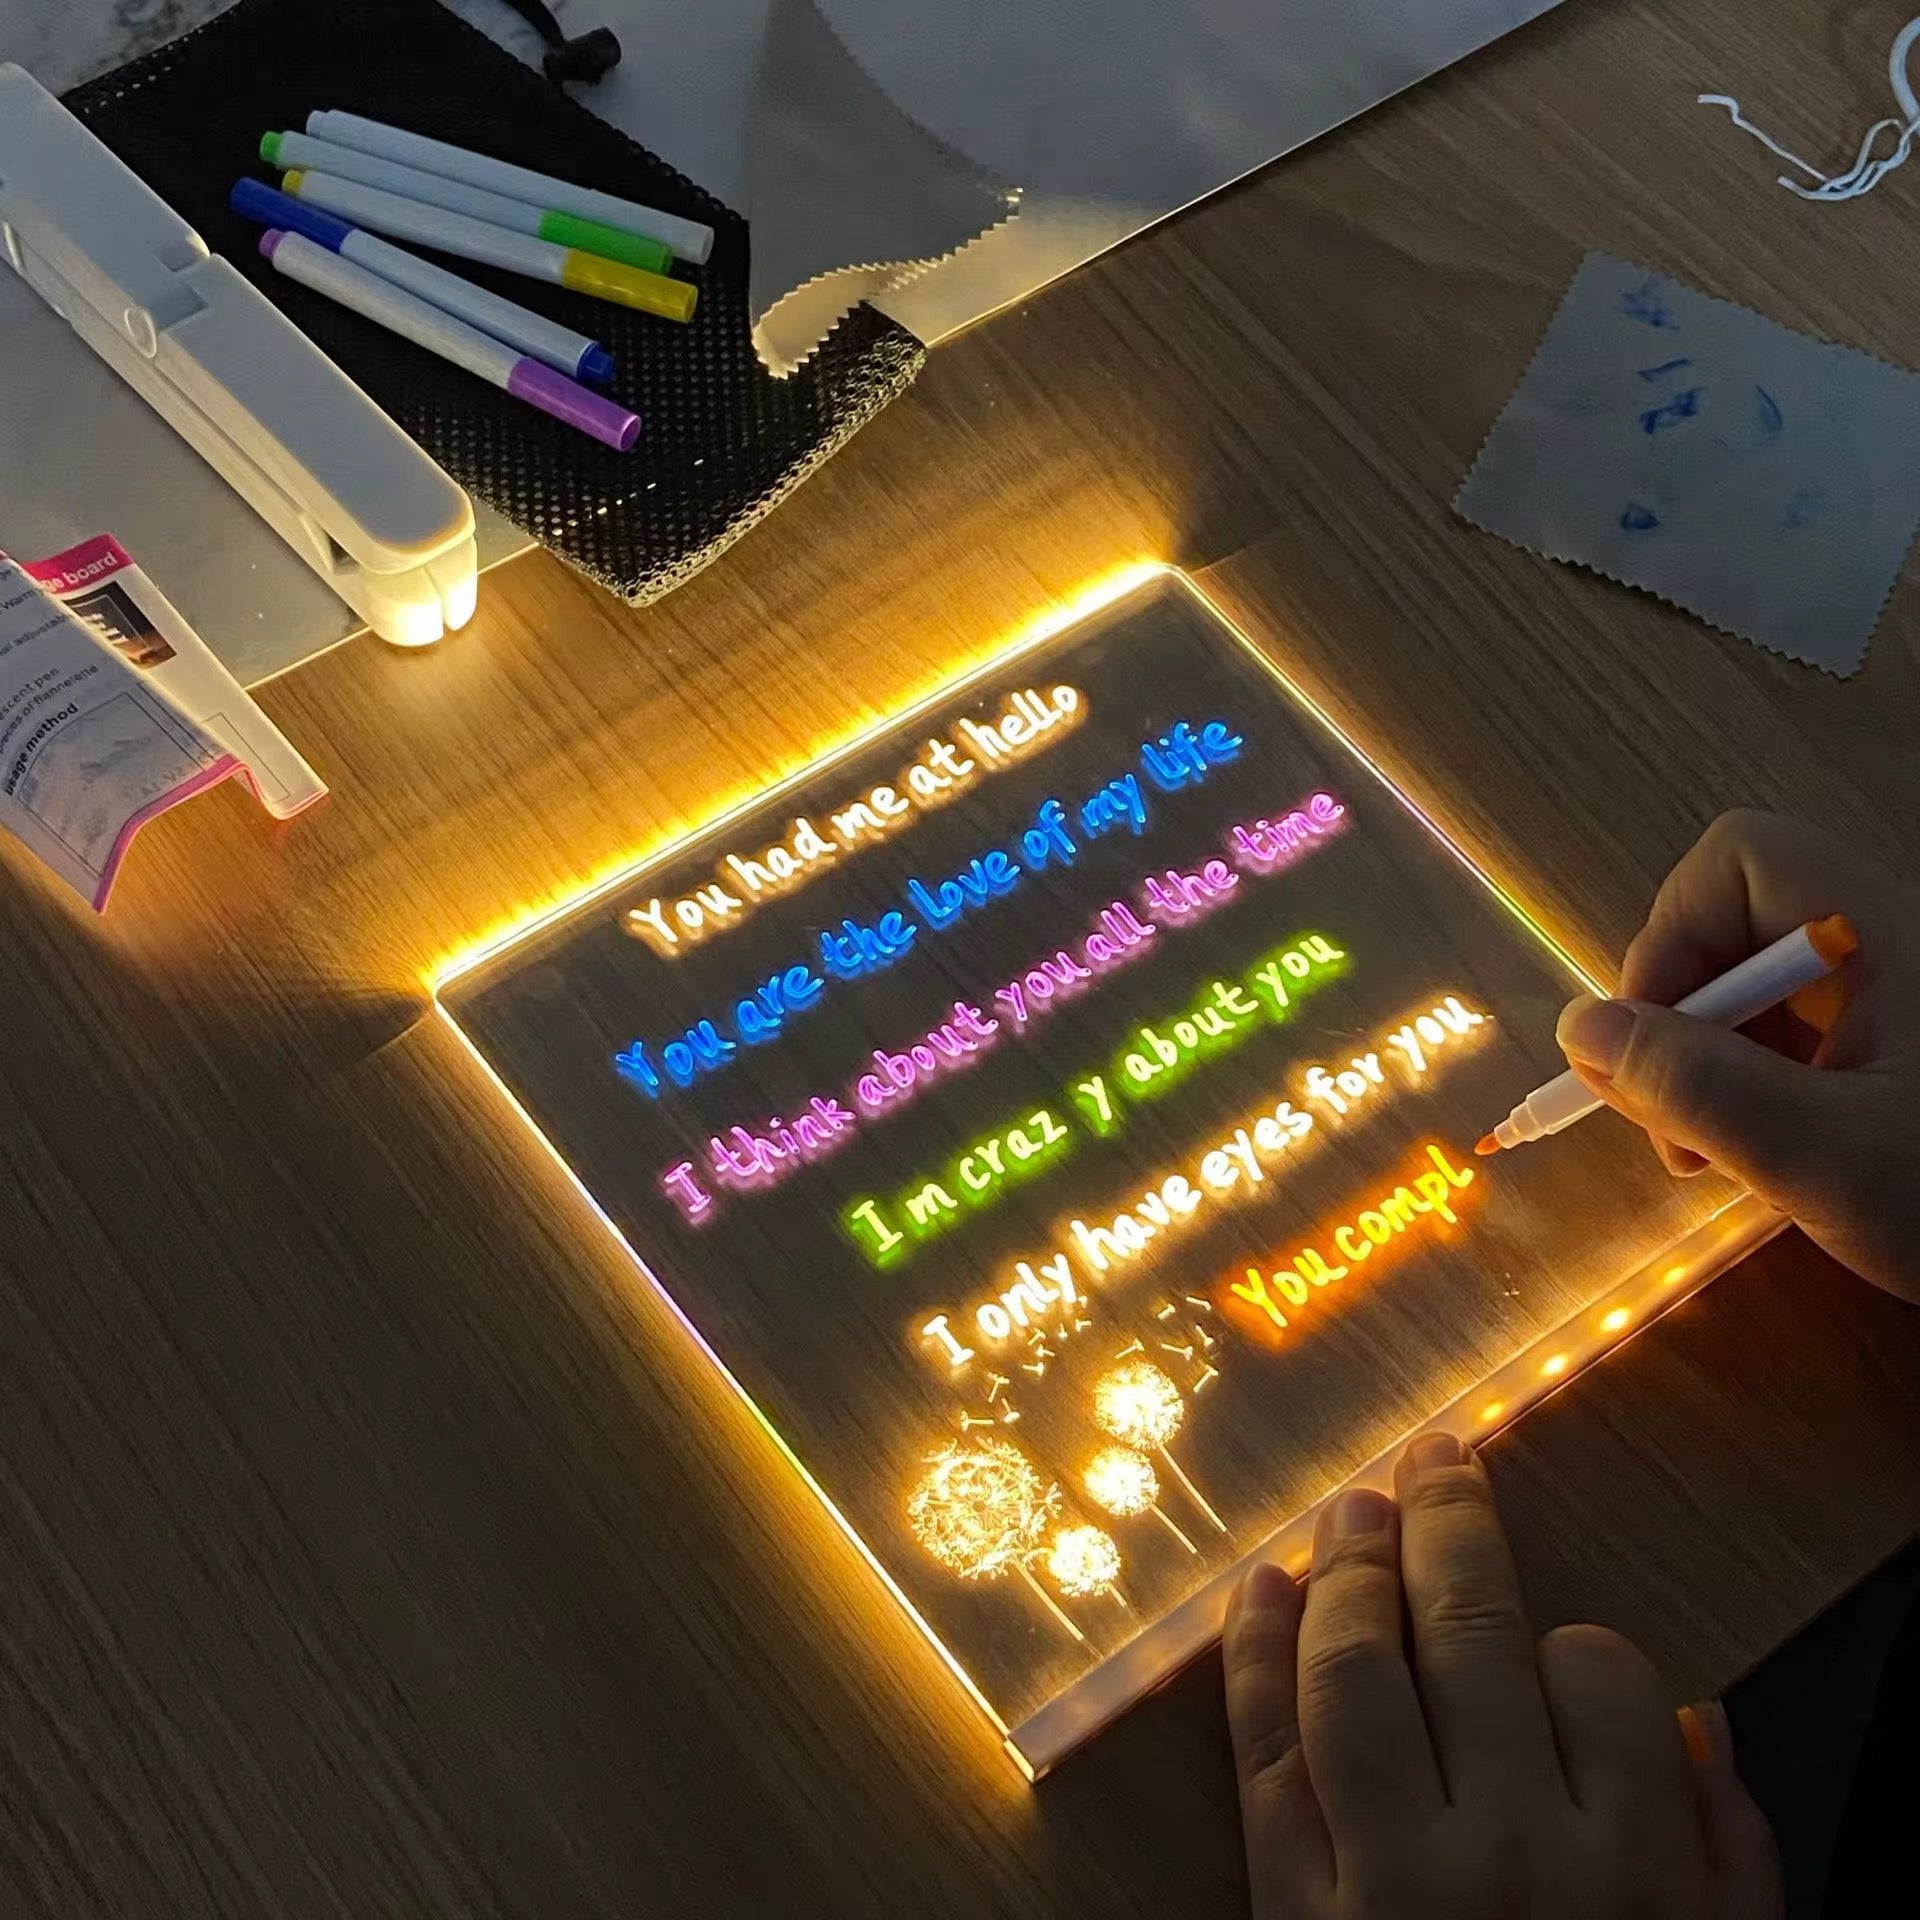 You had me at hello
You are the love of my life
I think about you all the time
I m craz y about you
I only have eyes for you
You compl
ge board
escent pen
pieces of flannelette
usage method